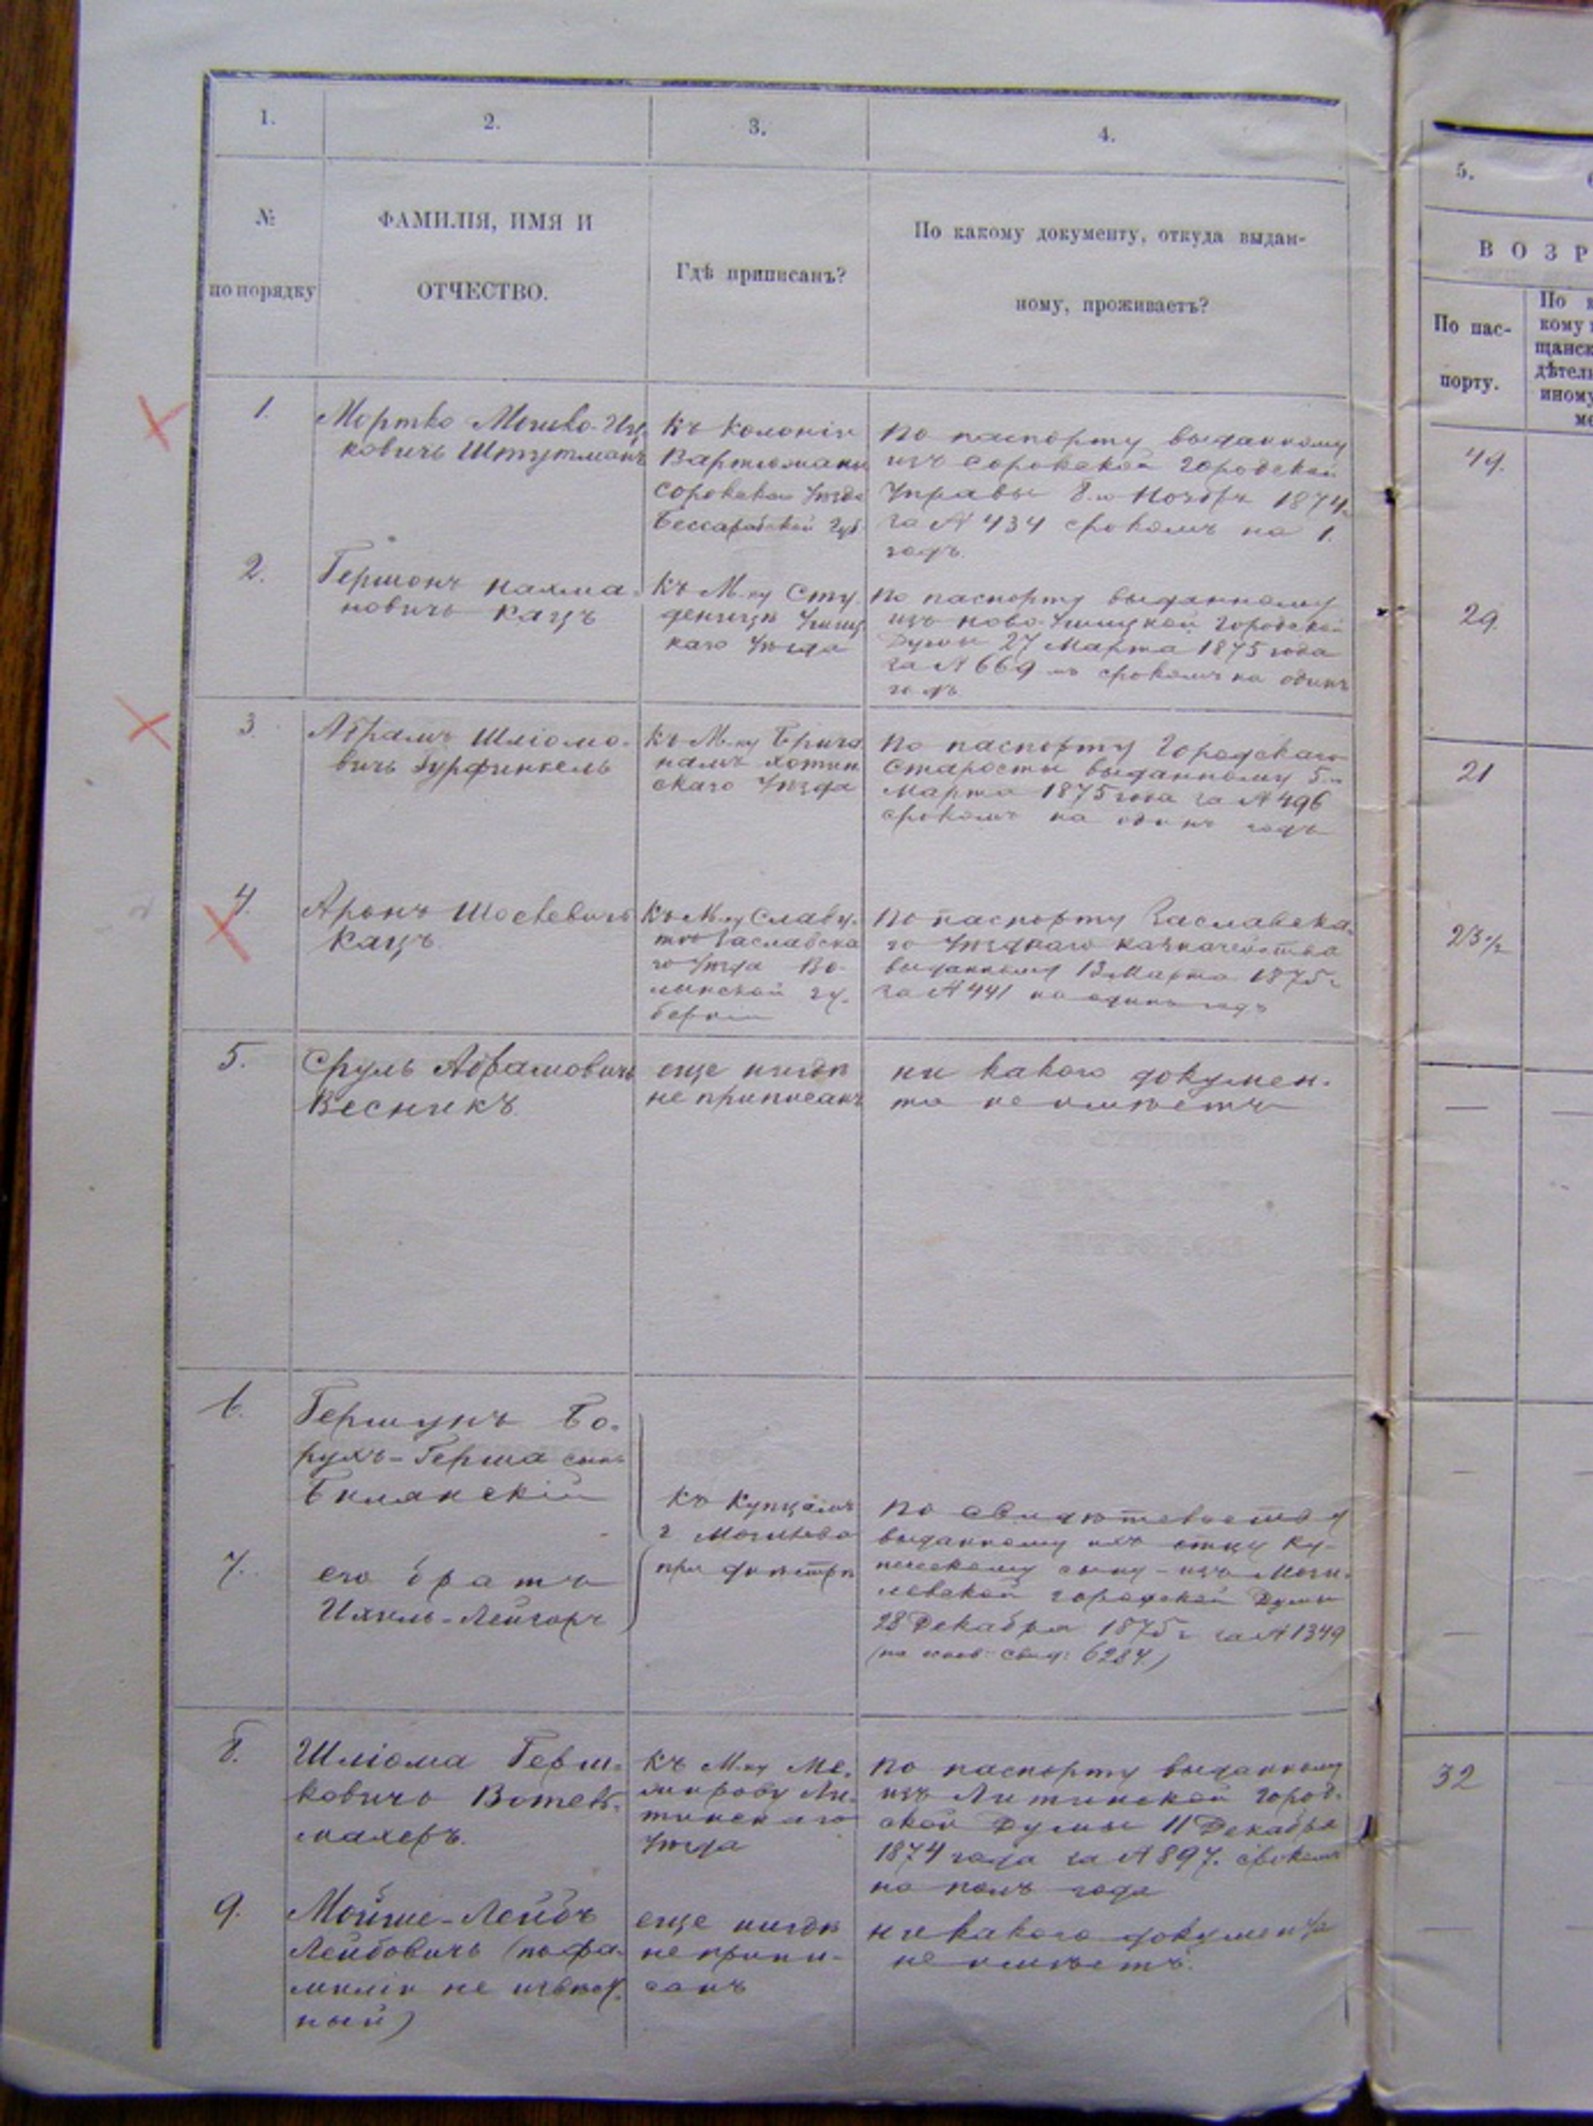 1.
2.
3.
4.
5.
№
по порядку
ФАМИЛІЯ, ИМЯ И
ОТЧЕСТВО.
Гдѣ приписанъ?
По какому документу, откуда выдан-
ному, проживаетъ?
ВОЗР
По пас-
порту.
По
кому
дѣтел
иному
1.
Мортко Мошко-Иц-
ковичъ Штутманъ
Къ колоніи
Вартюжаны
Сорокскаго уѣзда
Бессарабской губ.
По паспорту выданному
изъ Сорокской городской
управы 8-го Ноября 1874 г.
за № 434 срокомъ на 1.
годъ.
49.
2.
Гершонъ Нахма-
новичъ Кацъ
Къ М-ку Сту-
деницѣ Ушиц-
каго уѣзда
По паспорту выданному
изъ Ново-Ушицкой городской
Думы 27 Марта 1875 года
за № 669 срокомъ на одинъ
годъ.
29.
3.
Абрамъ Шліомо-
вичъ Гурфинкель
Къ М-ку Брича-
намъ Хотин-
скаго уѣзда
По паспорту Городскаго
Старосты выданному 5-го
Марта 1875 года за № 496
срокомъ на одинъ годъ
21
4.
Аронъ
Кацъ
Къ М-ку Славу-
тѣ Заславска-
го уѣзда Во-
лынской гу-
берніи
По паспорту Заславска-
го уѣзднаго казначейства
выданному 13 Марта 1875 г.
за № 441 на одинъ годъ
23 ½
5.
Сруль Абрамовичъ
Весникъ
еще нигдѣ
не приписанъ
ни какого докумен-
та не имѣетъ
6.
Гершунъ Бо-
рухъ-Герша сынъ
Билянскій
7.
его братъ
Ихиль-Лейзоръ
Къ купцамъ
г. Могилева
при Днѣстрѣ
По свидѣтельству
выданному ихъ отцу ку-
печескому сыну - изъ Моги-
левской городской Думы
28 Декабря 1875 г. за № 1349
6284.)
8.
Шліома Герш-
ковичъ
махеръ.
Къ М-ку Ме-
жирову Ли-
тинскаго
уѣзда
По паспорту выданному
изъ Литинской город-
ской Думы 11 Декабря
1874 года за № 897. срокомъ
на полъ года
32
9.
Мойше-Лейбъ
Лейбовичъ (по фа-
миліи не извѣст-
ный)
еще нигдѣ
не припи-
санъ
никакого документа
не имѣетъ.